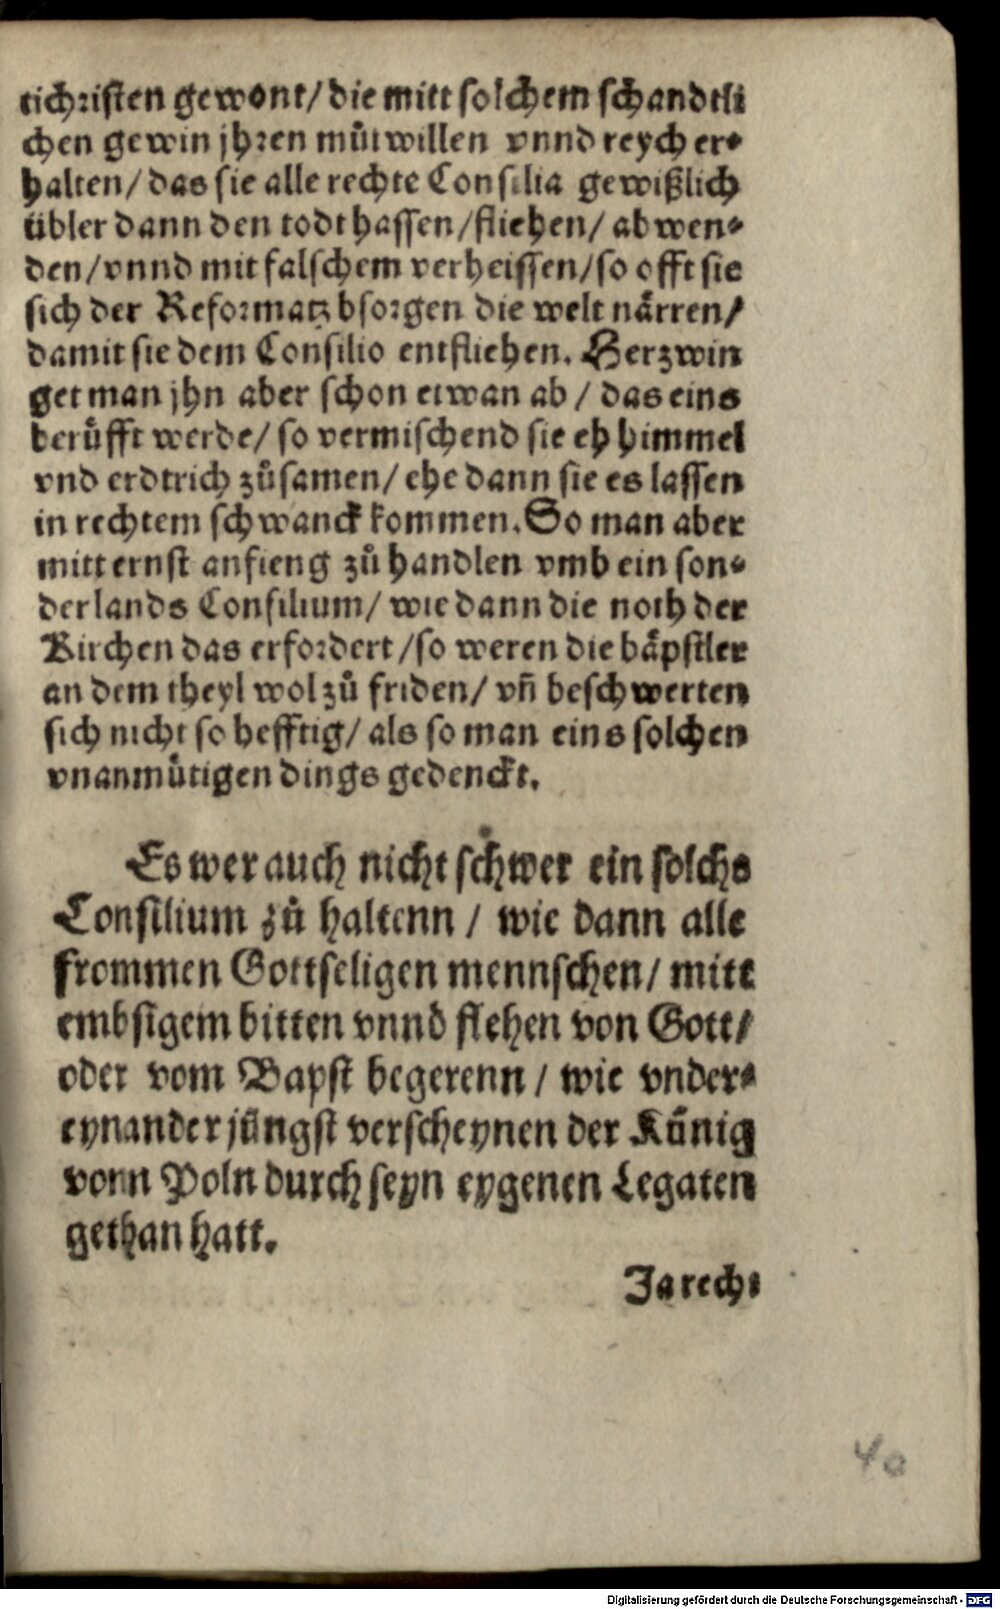 tichristen gewont/ die mitt solchem schandtli
chen gewin jhren můtwillen vnnd reych er⸗
halten/ das sie alle rechte Consilia gewißlich
übler dann den todt hassen/ fliehen/ abwen⸗
den/ vnnd mit falschem verheissen/ so offt sie
sich der Reformatz bsorgen die welt närren/
damit sie dem Consilio entfliehen. Herzwin
get man jhn aber schon etwan ab / das eins
berůfft werde/ so vermischend sie eh himmel
vnd erdtrich zůsamen/ ehe dann sie es lassen
in rechtem schwanck kommen. So man aber
mitt ernst anfieng zů handlen vmb ein son⸗
der lands Consilium/ wie dann die noth der
Kirchen das erfordert/ so weren die bäpstler
an dem theyl wol zů friden/ vñ beschwerten
sich nicht so hefftig/ als so man eins solchen
vnanmůtigen dings gedenckt.
Es wer auch nicht schwer ein solchs
Consilium zů haltenn / wie dann alle
frommen Gottseligen mennschen/ mitt
embsigem bitten vnnd flehen von Gott/
oder vom Bapst begerenn / wie vnder⸗
eynander jüngst verscheynen der Künig
vonn Poln durch seyn eygenen Legaten
gethan hatt.
Ja rech⸗
40
Digitalisierung gefördert durch die Deutsche Forschungsgemeinschaft - DFG